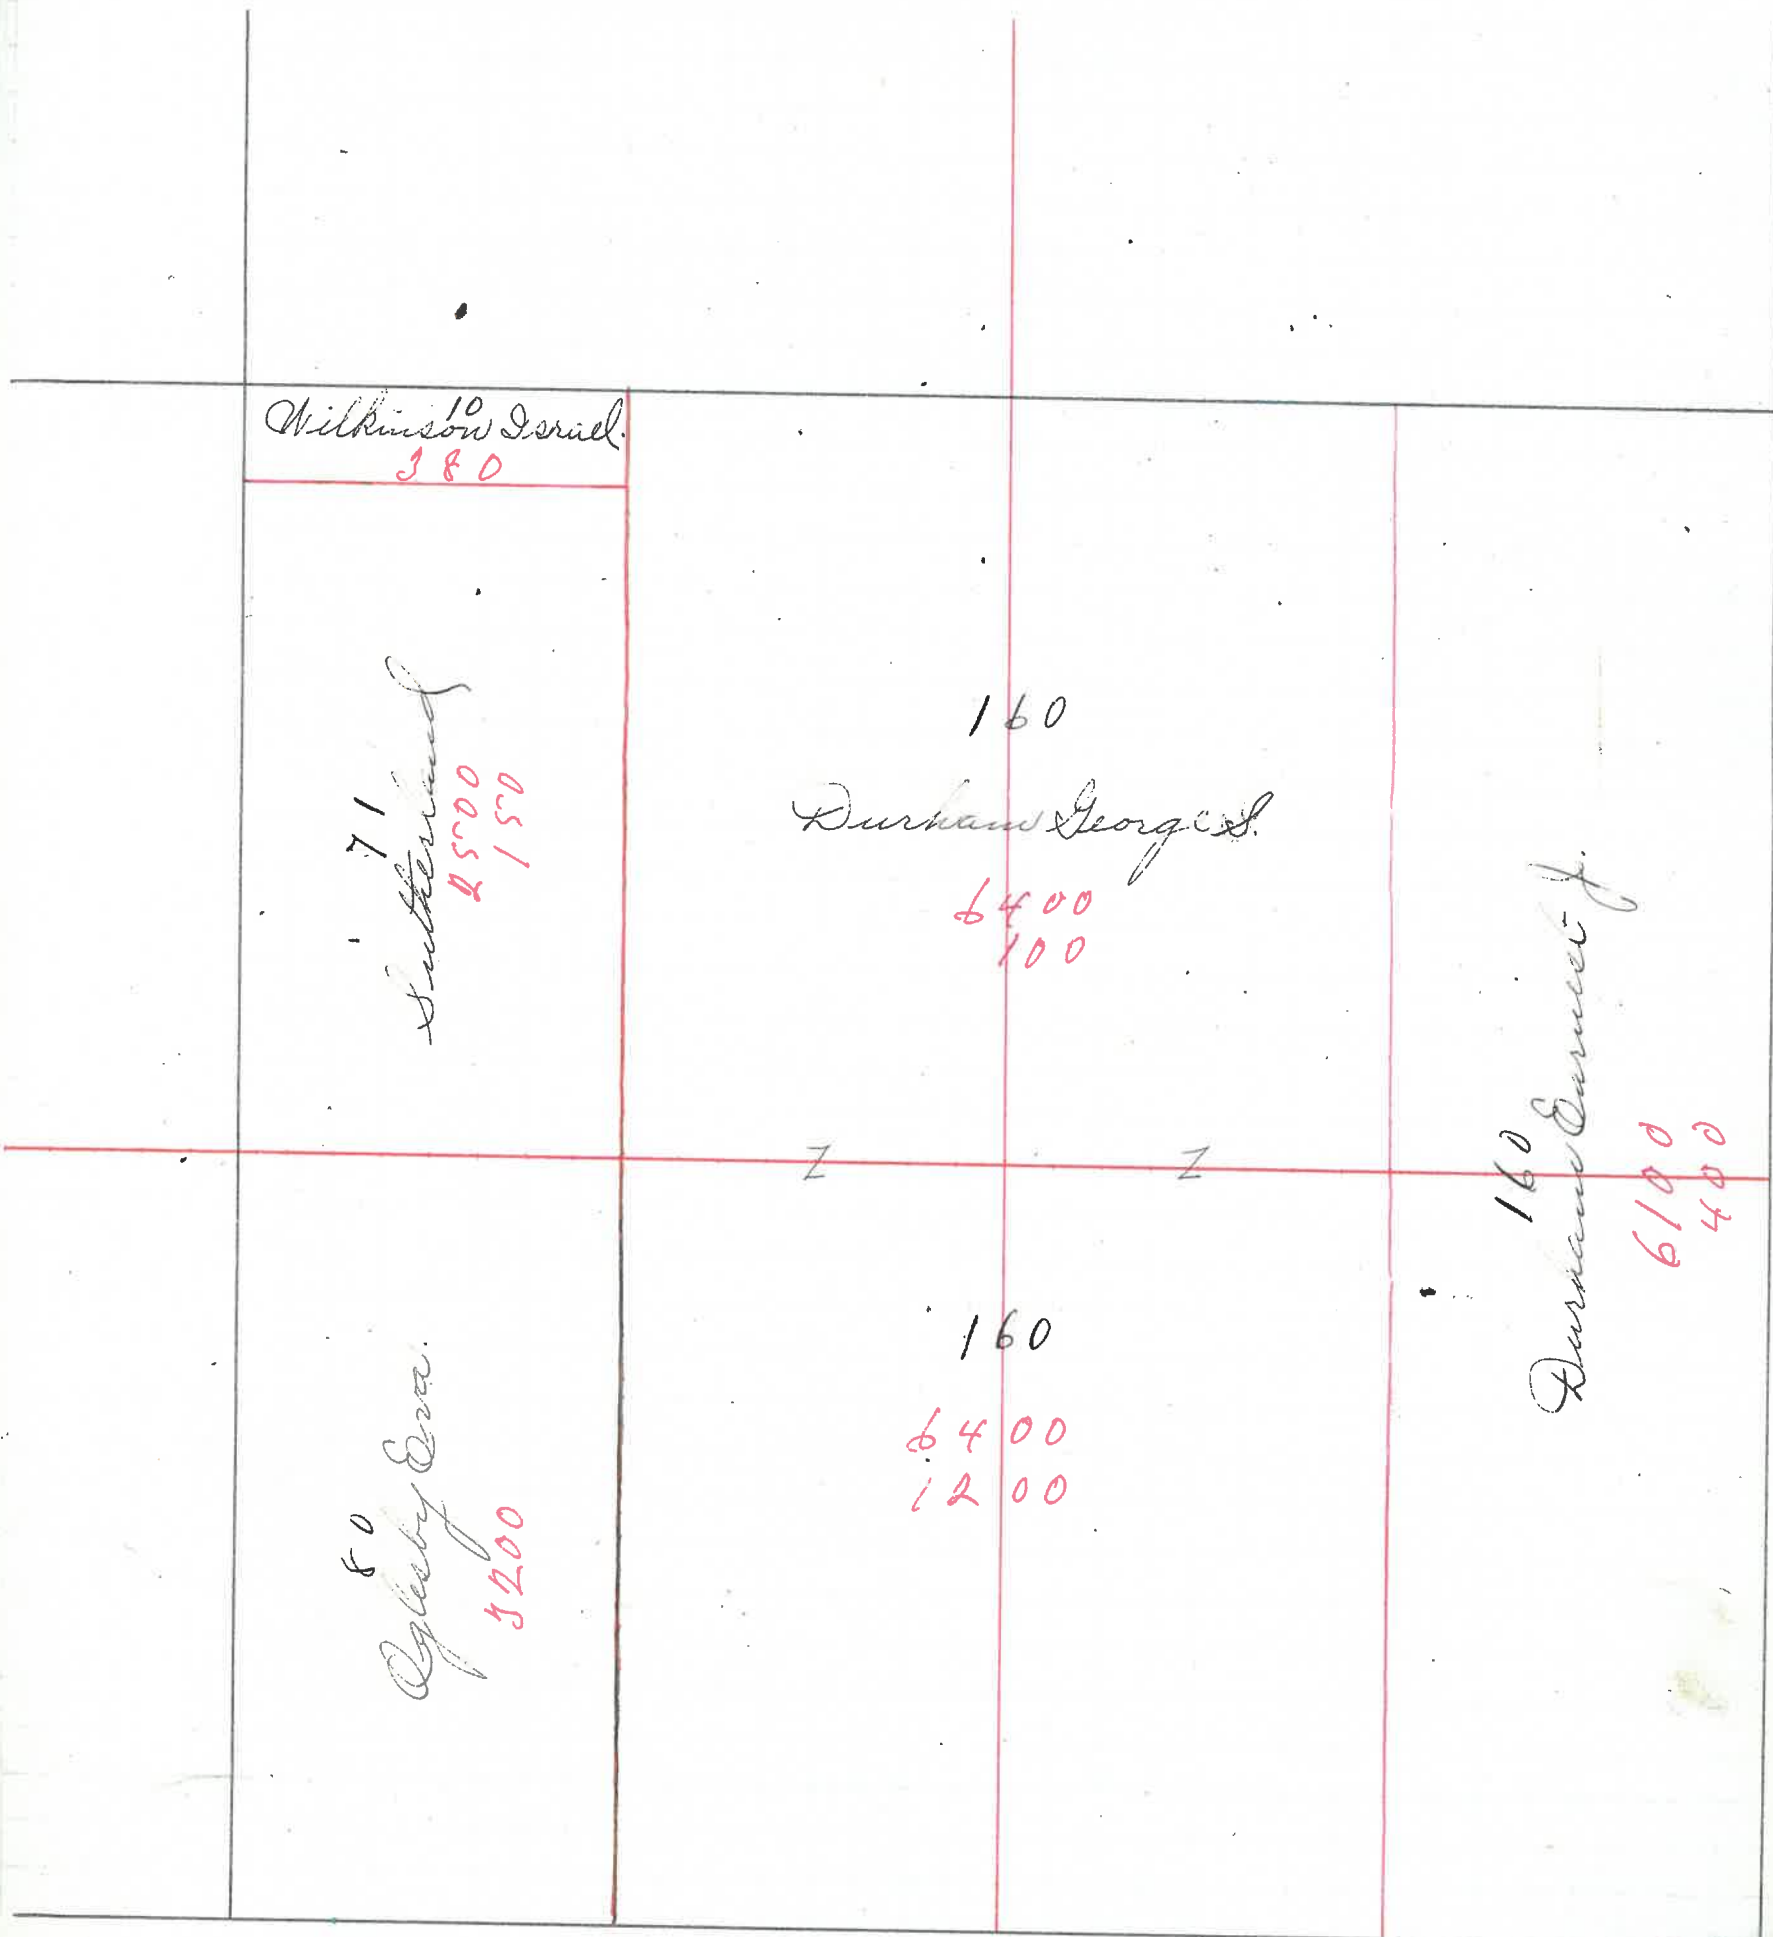 10
Wilkinson Israel.
380
71
Sutherland
2500
150
160
Durham George S.
6400
100
160
Durham Earnest J.
6100
400
Z Z
80
Oglesby Eva.
3200
160
6400
1200